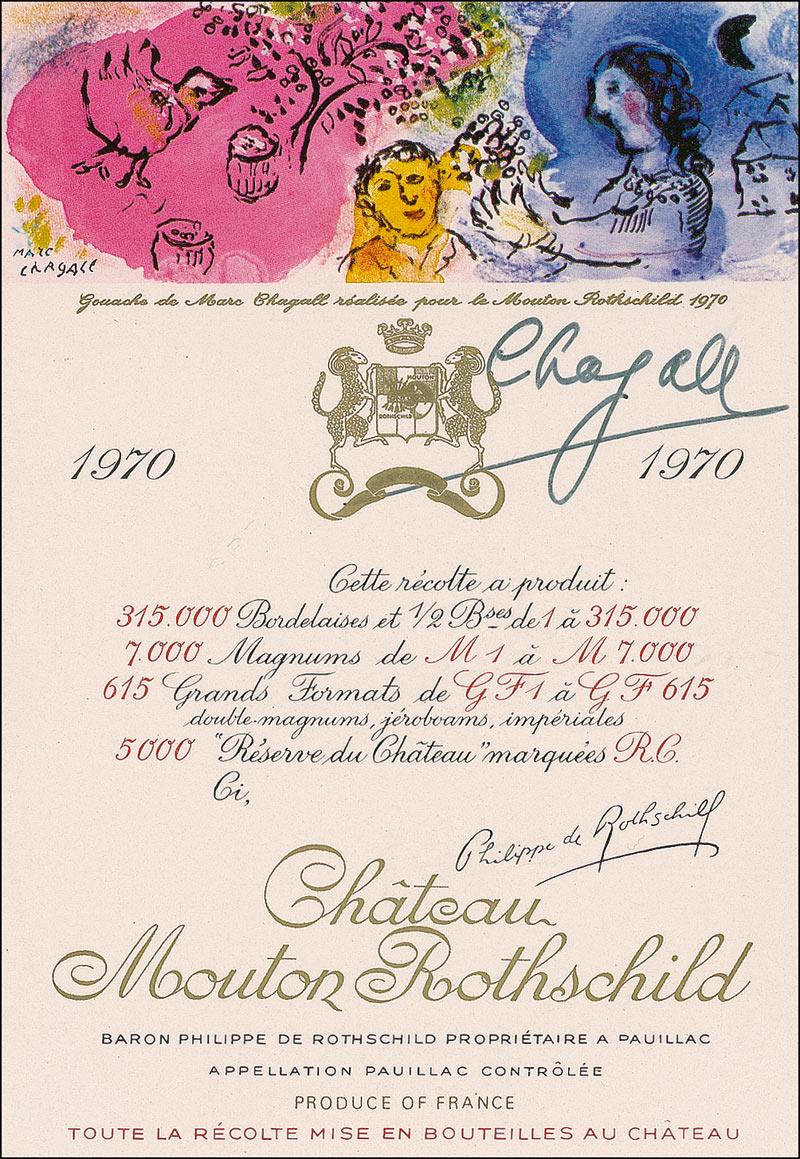 MARC
CHAGALL
Gouache de Marc Chagall réalisée pour le Mouton Rothschild 1970
Chagall
MOUTON
ROTHSCHILD
1970
1970
Cette récolte a produit :
315.000 Bordelaises et 1/2 Bses de 1 à 315.000
7.000 Magnums de M 1 à M 7.000
615 Grands Formats de G F 1 à G F 615
double-magnums, jéroboams, impériales
5000 "Réserve du Château" marquées R.C.
Ci,
Philippe de Rothschild
Château
Mouton Rothschild
BARON PHILIPPE DE ROTHSCHILD PROPRIÉTAIRE A PAUILLAC
APPELLATION PAUILLAC CONTRÔLÉE
PRODUCE OF FRANCE
TOUTE LA RÉCOLTE MISE EN BOUTEILLES AU CHÂTEAU